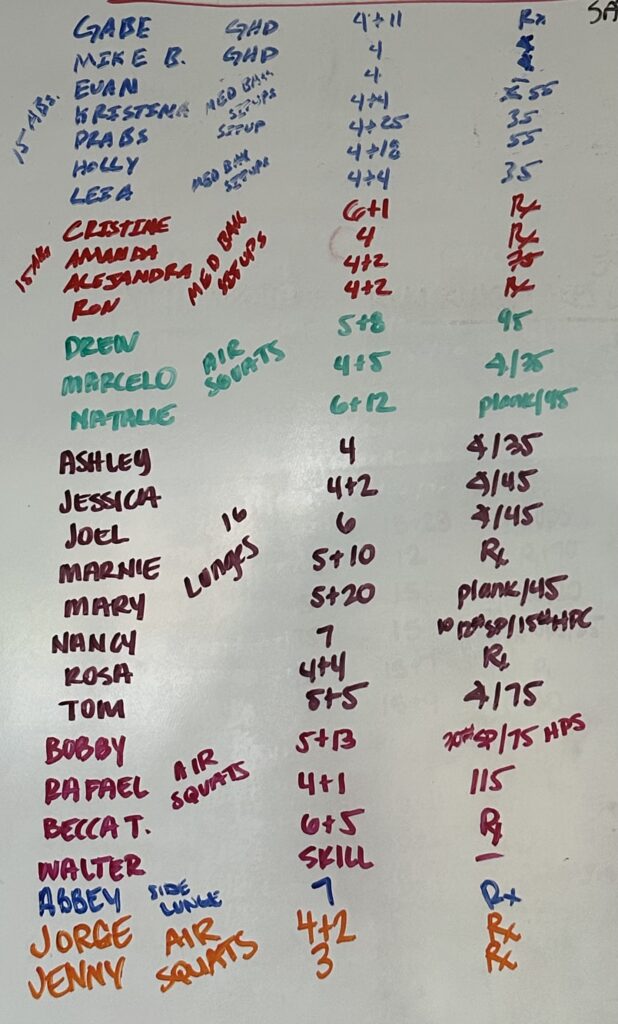 SA
GABE GHD 4+11 Rx
MIKE B. GHD 4
EVAN 4
KRISTINA MED BALL SITUPS 4+4 55
15 ABS.
PRABS SITUP 4+25 35
HOLLY 4+18 55
LESA MED BALL SITUPS 4+4 35
CRISTINE 6+1 Rx
AMANDA MED BALL SITUPS 4 Rx
15 ABS
ALEJANDRA 4+2 75
RON 4+2 Rx
DREW 5+8 95
MARCELO AIR SQUATS 4+5 4/35
NATALIE 6+12 plank/45
ASHLEY 4 4/35
JESSICA 4+2 4/45
JOEL 16 LUNGES 6 4/45
MARNIE 5+10 Rx
MARY 5+20 plank/45
NANCY 7 10 12# SP/15# HPC
ROSA 4+4 Rx
TOM 5+5 4/75
BOBBY 5+13 SP/75 HPS
RAFAEL AIR SQUATS 4+1 115
BECCA T. 6+5 Rx
WALTER SKILL –
ABBEY SIDE LUNGE 7 Rx
JORGE AIR SQUATS 4+2 Rx
JENNY 3 Rx